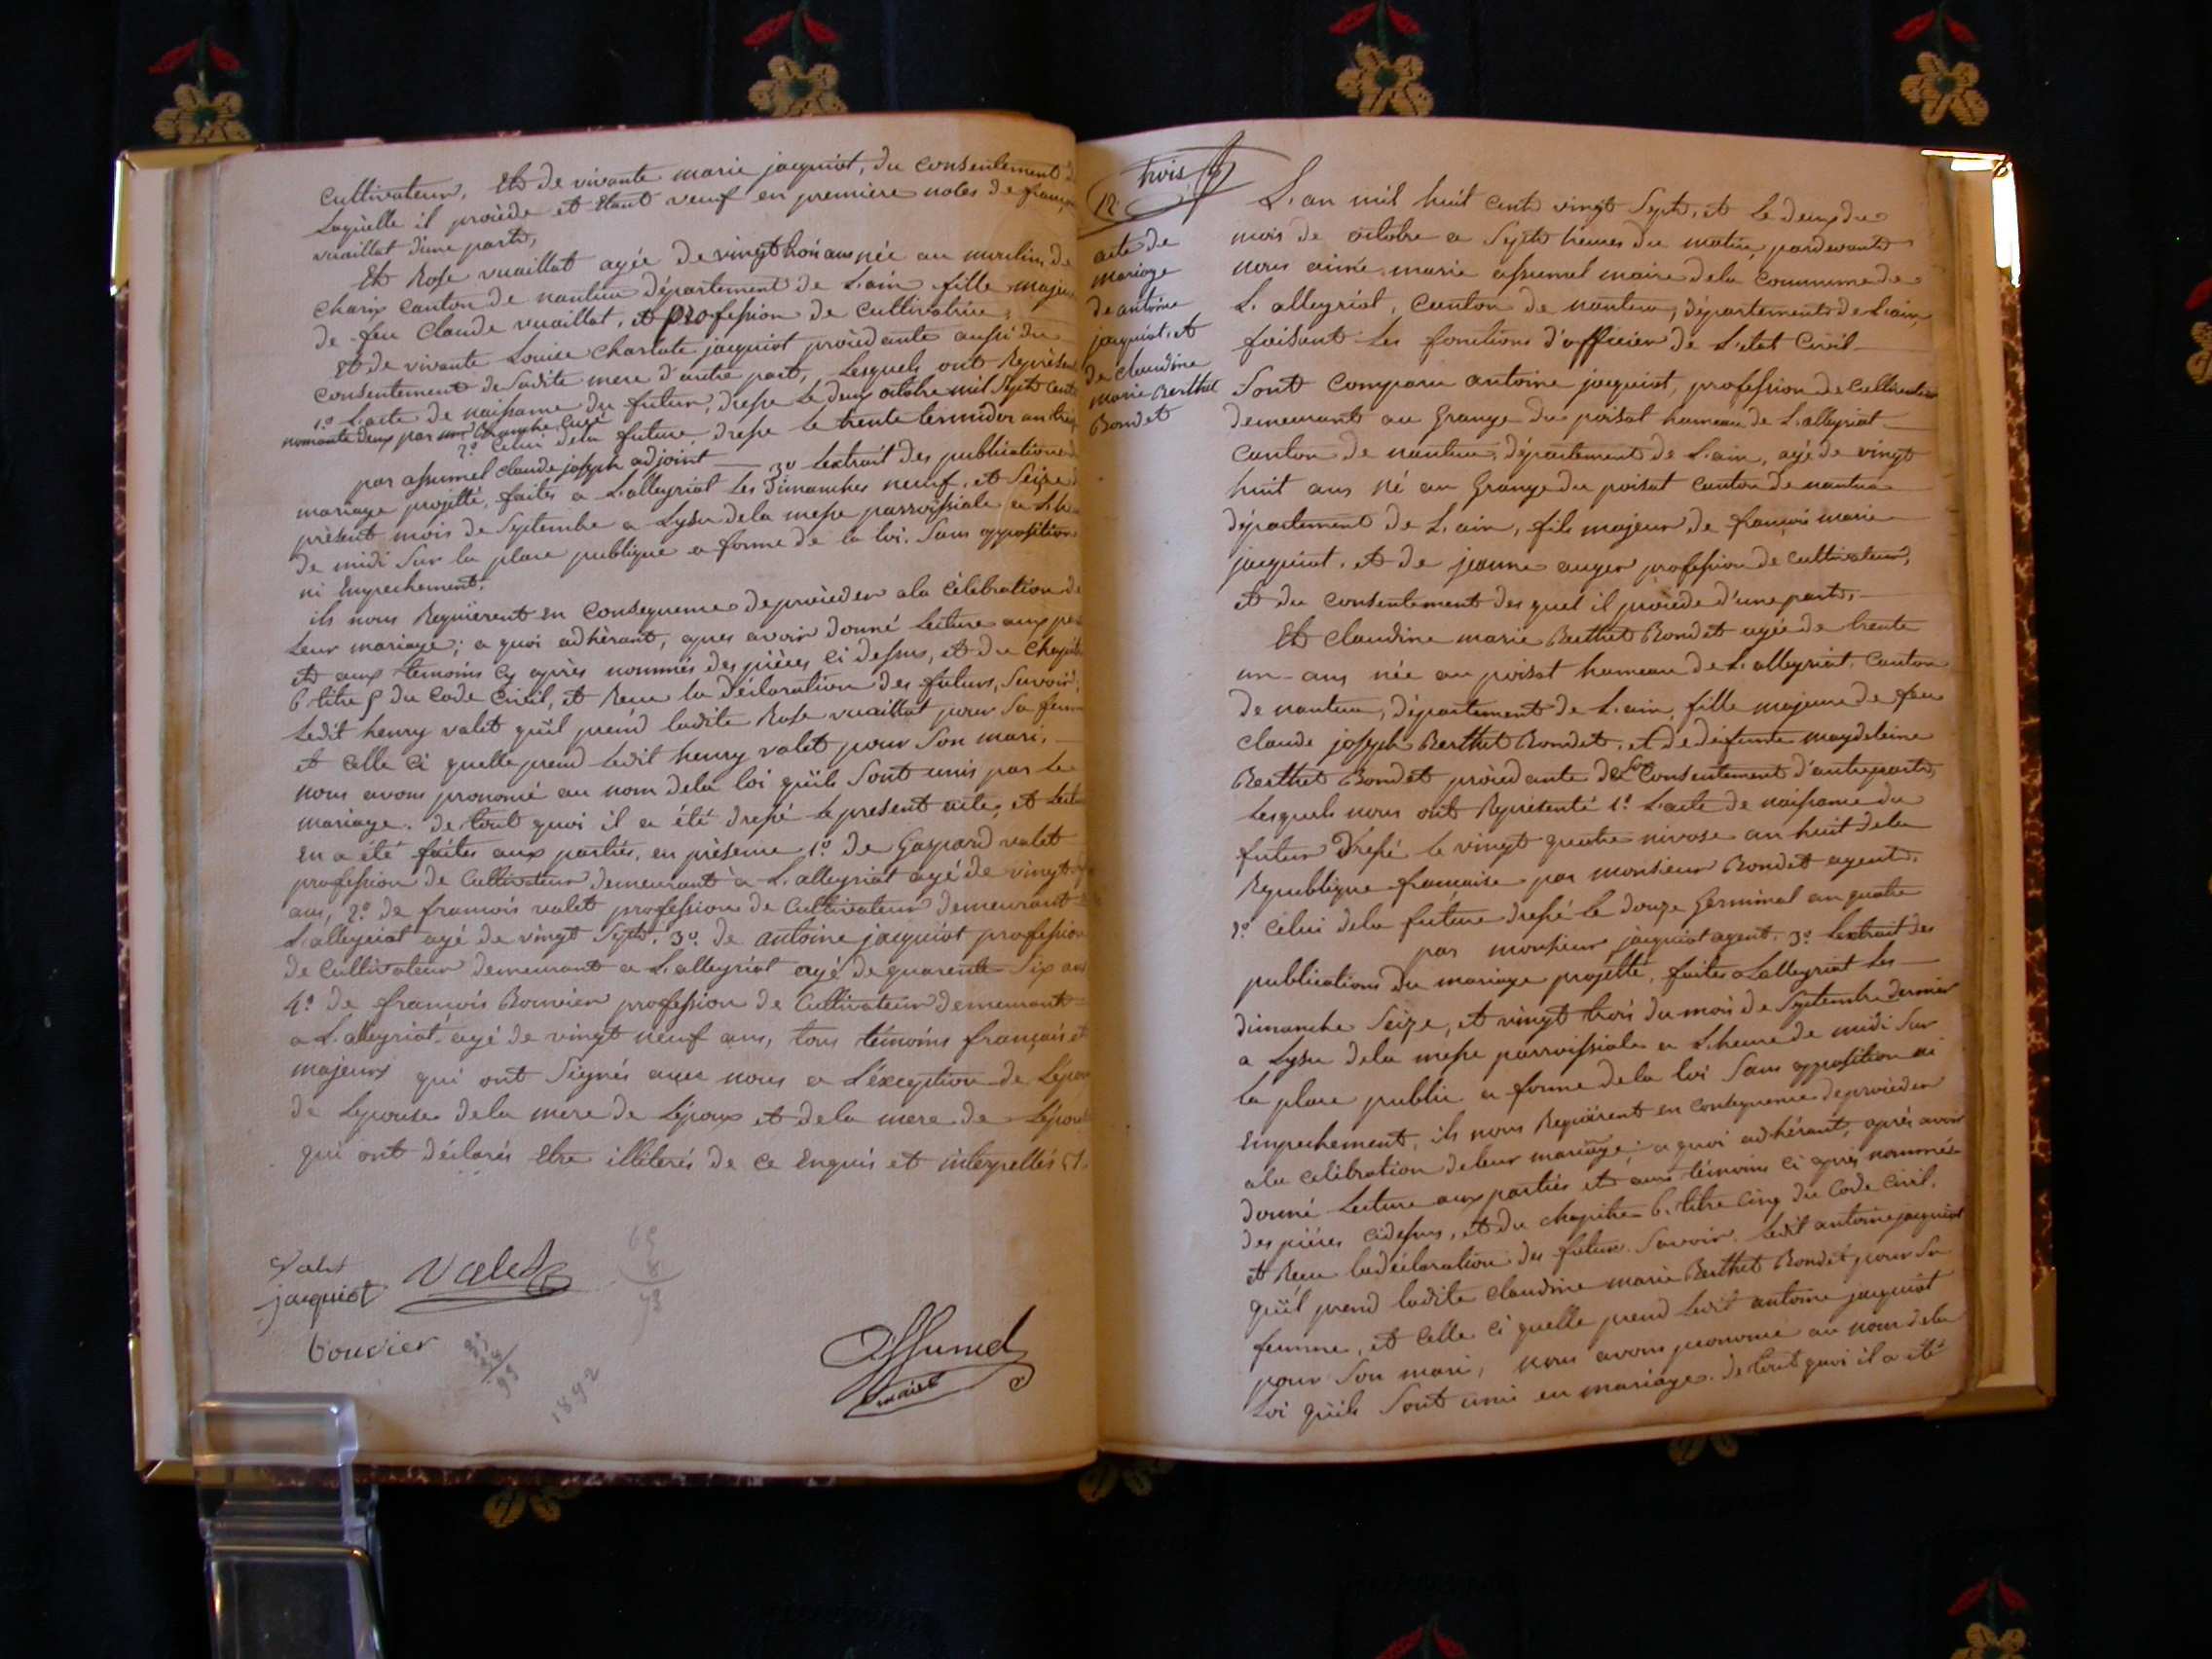 cultivateur, Et de vivante marie jacquiot, du consentement de
Laquelle il procède et Etant veuf en premiere notes de françoise
vuaillat d'une part,
Et Rose vuaillat agée de vingt trois ans née au moulin de
Charix canton de nantua département de L'ain fille majeure
de feu Claude vuaillat, et profession de cultivatrice,
Et de vivante Louise Charlote jacquiot procédante aussi du
consentement de Sadite mere d'autre part, Lesquels ont Représenté
1.º L'acte de naissance du futur, dressé Le deux octobre mil Sept cent
nonante deux par Curé
2.º Celui dela future dressé le trente termidor an treize
par assumel claude joseph adjoint 3º Lextrait des publications de
mariage projetté, faites a L'alleyriat les Dimanches neuf, et Seize du
présent mois de Septembre a Lysu dela messe parroissiale a L'h
de midi Sur la place publique a forme de la loi. Sans opposition
ni Empechement.
ils nous Requierent en consequence de procéder ala célébration de
Leur mariage; a quoi adhérant, apres avoir donné Lecture aux par
et aux temoins cy après nommés des pièces ci dessus, et du chapitre
6 titre 5 du Code Civil, et Recu la déclaration des futurs, Savoir,
Ledit henry valet qu'il prend ladite Rose vuaillat pour Sa femme
et celle Ci quelle prend Ledit henry valet pour Son mari,
nous avons prononcé au nom dela loi qu'ils Sont unis par Le
mariage. de tout quoi il a été dressé le present acte, et Lecture
En a été faites aux parties, en présence 1.º de Gaspard valet
profession de Cultivateur demeurant a L'alleyriat agé de vingt
ans, 2.º de francois valet profession de Cultivateur demeurant
L'alleyriat agé de vingt Sept. 3º de antoine jacquiot profession
de Cultivateur demeurant a L'alleyriat agé de quarente Six ans
4.º de francois Bouvier profession de Cultivateur demeurant
a L'alleyriat agé de vingt neuf ans, tous témoins français et
majeurs qui ont Signés avec nous a L'éxception de Lépoux
de Lepouse dela mere de Lépoux et dela mere de Lépouse
qui ont déclarés Etre illiterés de ce Enquis et interpellés
Valet
jacquiot Valet
bouvier
Assumel
maire
1892
trois
12
acte de
mariage
de antoine
jacquiot, et
de claudine
marie Berthet
Bondet
L'an mil huit cent vingt Sept, et le deux du
mois de octobre a Sept heures du matin, pardevant
nous aimé marie assumel maire dela Commune de
L'alleyriat, Canton de nantua, département de L'ain,
faisant Les fonctions d'officier de L'etat Civil
Sont Comparu antoine jacquiot, profession de Cultivateur
demeurant au Grange du poisat hameau de L'alleyriat
Canton de nantua, département de L'ain, agé de vingt
huit ans né au Grange du poisat canton de nantua
département de L'ain, fils majeur de françois marie
jacquiot, et de jeanne auger profession de cultivateur,
et du consentement des quel il procède d'une part,
Et claudine marie Berthet Bondet agée de trente
un ans née au poisat hameau de L'alleyriat, Canton
de nantua, département de L'ain, fille majeure de feu
Claude joseph Berthet Bondet, et de défunte magdeleine
Berthet Bondet procédante de Son Consentement d'autre part,
Lesquels nous ont Représenté 1.º L'acte de naissance du
futur dressé le vingt quatre nivose an huit dela
Republique française par monsieur Bondet agent,
2.º Celui dela future dressé Le douze Germinal an quatre
par monsieur jacquiot agent. 3.º Lextrait des
publications du mariage projetté, faites a Lalleyriat Les
dimanche Seize, et vingt trois du mois de Septembre dernier
a Lysu dela messe parroissiale a L'heure de midi Sur
la place public a forme dela loi Sans opposition ni
Empechement, ils nous Requierent en Consequence de procéder
ala Célébration deleur mariage; a quoi adhérant, après avoir
donné Lecture aux parties et aux témoins ci après nommés
des pièces cidessus, et du chapitre 6. titre Cinq du Code Civil.
et Recu la déclaration des futur. Savoir. Ledit antoine jacquiot
qu'il prend ladite claudine marie Berthet Bondet pour Sa
femme, et Celle Ci quelle prend Ledit antoine jacquiot
pour Son mari, nous avons prononcé au nom dela
Loi qu'ils Sont unis en mariage. de tout quoi il a été